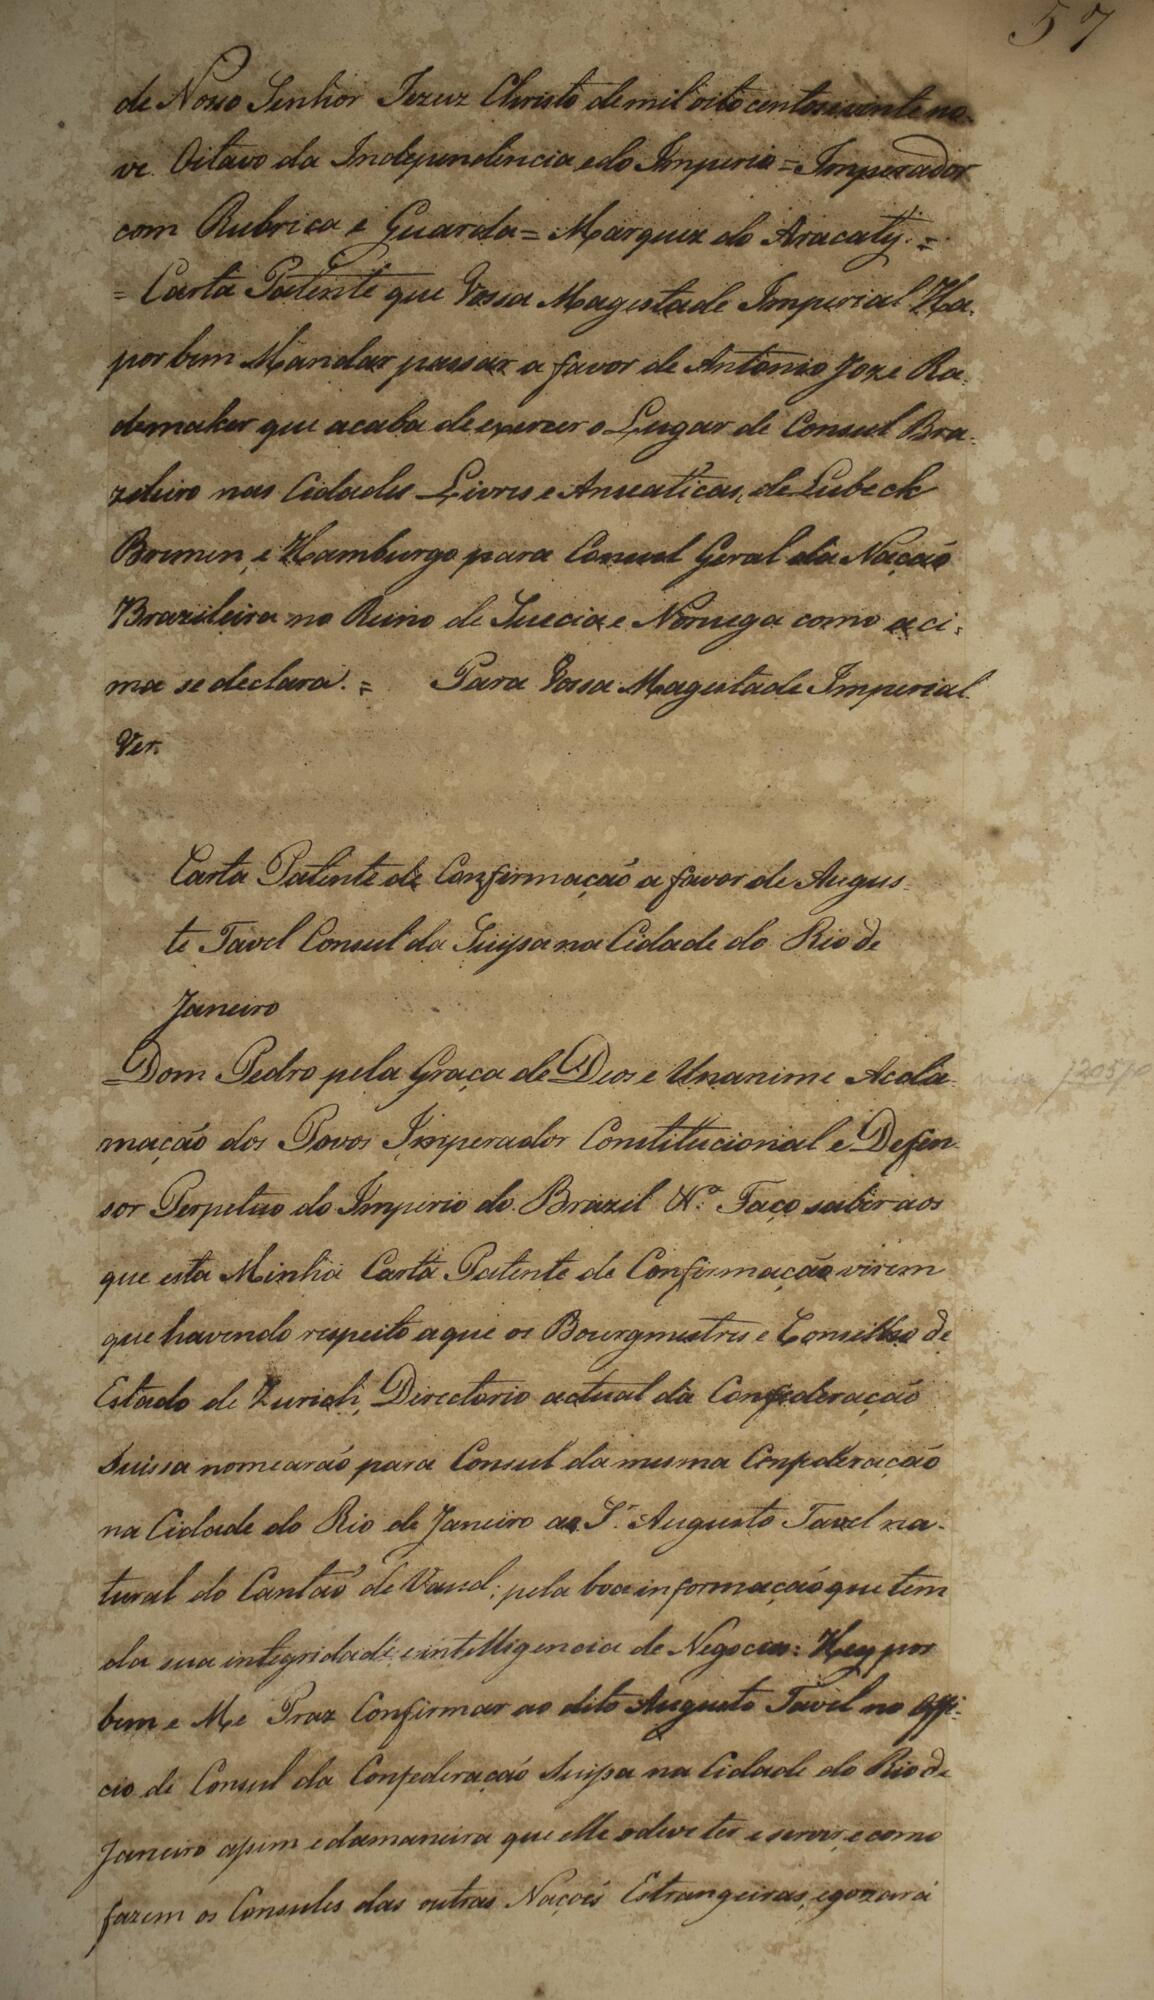 57
de Nosso Senhor Jezuz Christo de mil oito centos e vinte no-
ve. Oitavo da Independencia e do Imperio = Imperador
com Rubrica e Guarda = Marquez do Aracaty. =
= Carta Patente que Vossa Magestade Imperial Ha
por bem Mandar passar a favor de Antonio Joze Ra-
demaker que acaba de exercer o Lugar de Consul Bra-
zileiro nas Cidades Livres e Anseaticas, de Lubeck
Bremen, e Hamburgo para Consul Geral da Nação
Brazileira no Reino de Suecia e Noruega como aci-
ma se declara. = Para Vossa Magestade Imperial
Ver.
Carta Patente de Confirmação a favor de Augus-
te Tavel Consul da Suissa na Cidade do Rio de
Janeiro
Dom Pedro pela Graça de Deos e Unanime Accla-
mação dos Povos Imperador Constitucional e Defen-
sor Perpetuo do Imperio do Brazil &.ª Faço saber aos
que esta Minha Carta Patente de Confirmação virem
que havendo respeito a que os Bourgmestres e Conselho de
Estado de Zurich, Directorio actual da Confederação
Suissa nomearaõ para Consul da mesma Confederação
na Cidade do Rio de Janeiro ao S.r Augusto Tavel na-
tural do Cantaõ de Vaud; pela boa informação que tem
da sua integridade e intelligencia de Negocios: Hey por
bem e Me Praz Confirmar ao dito Augusto Tavel no Offi-
cio de Consul da Confederação Suissa na Cidade do Rio de
Janeiro assim e da maneira que elle o deve ter e servir, e como
fazem os Consules das outras Nações Estrangeiras, e gozará